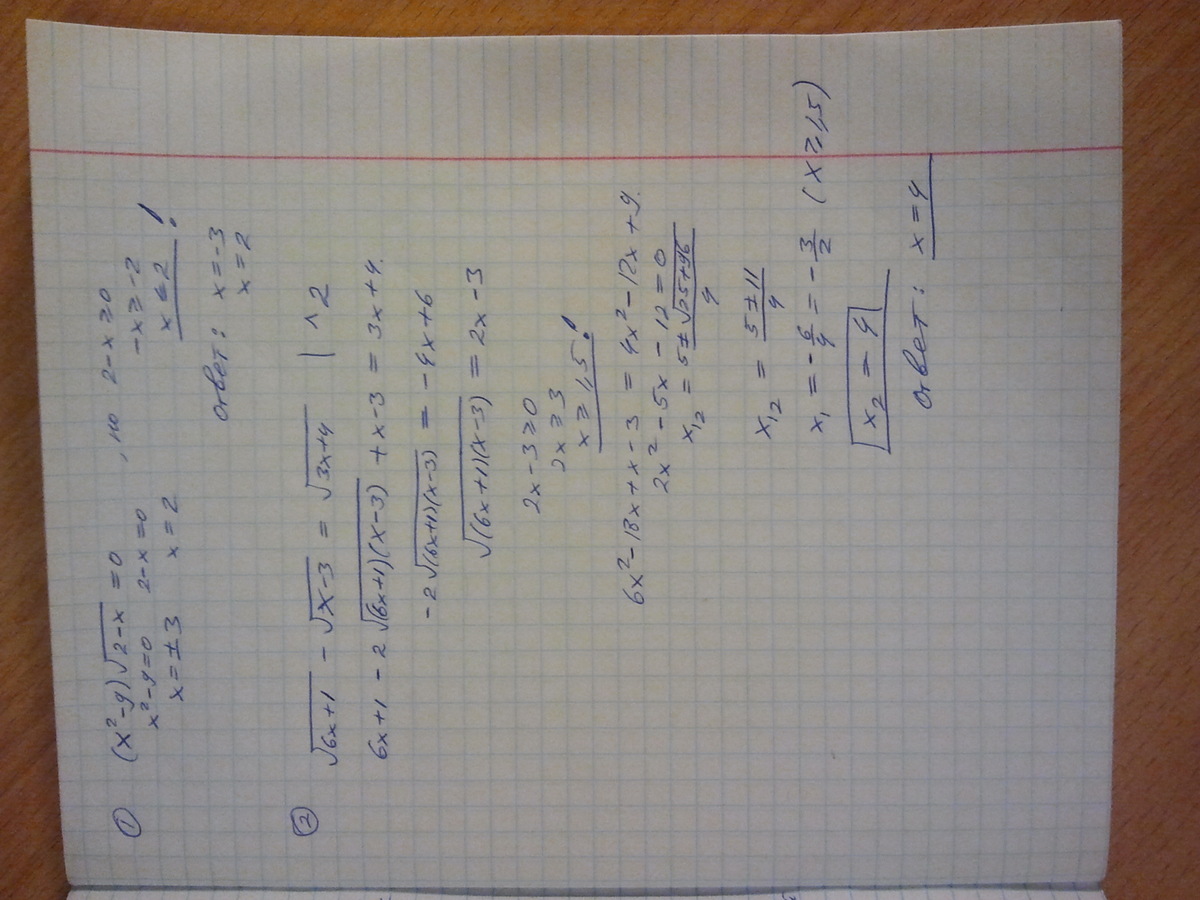 ① (x²-9)√(2-x) = 0 , но 2-x ≥ 0
x²-9=0 2-x=0 -x ≥ -2
x=±3 x=2 x ≤ 2 !
Ответ: x=-3
x=2
② √(6x+1) - √(x-3) = √(3x+4) | ^2
6x+1 - 2√((6x+1)(x-3)) + x-3 = 3x+4.
-2√((6x+1)(x-3)) = -4x+6
√((6x+1)(x-3)) = 2x-3
2x-3 ≥ 0
2x ≥ 3
x ≥ 1,5 !
6x²-18x+x-3 = 4x²-12x+9.
2x²-5x-12=0
x₁,₂ = (5±√(25+96))/4
x₁,₂ = (5±11)/4
x₁ = -6/4 = -3/2 (x ≥ 1,5)
x₂ = 4
Ответ: x=4